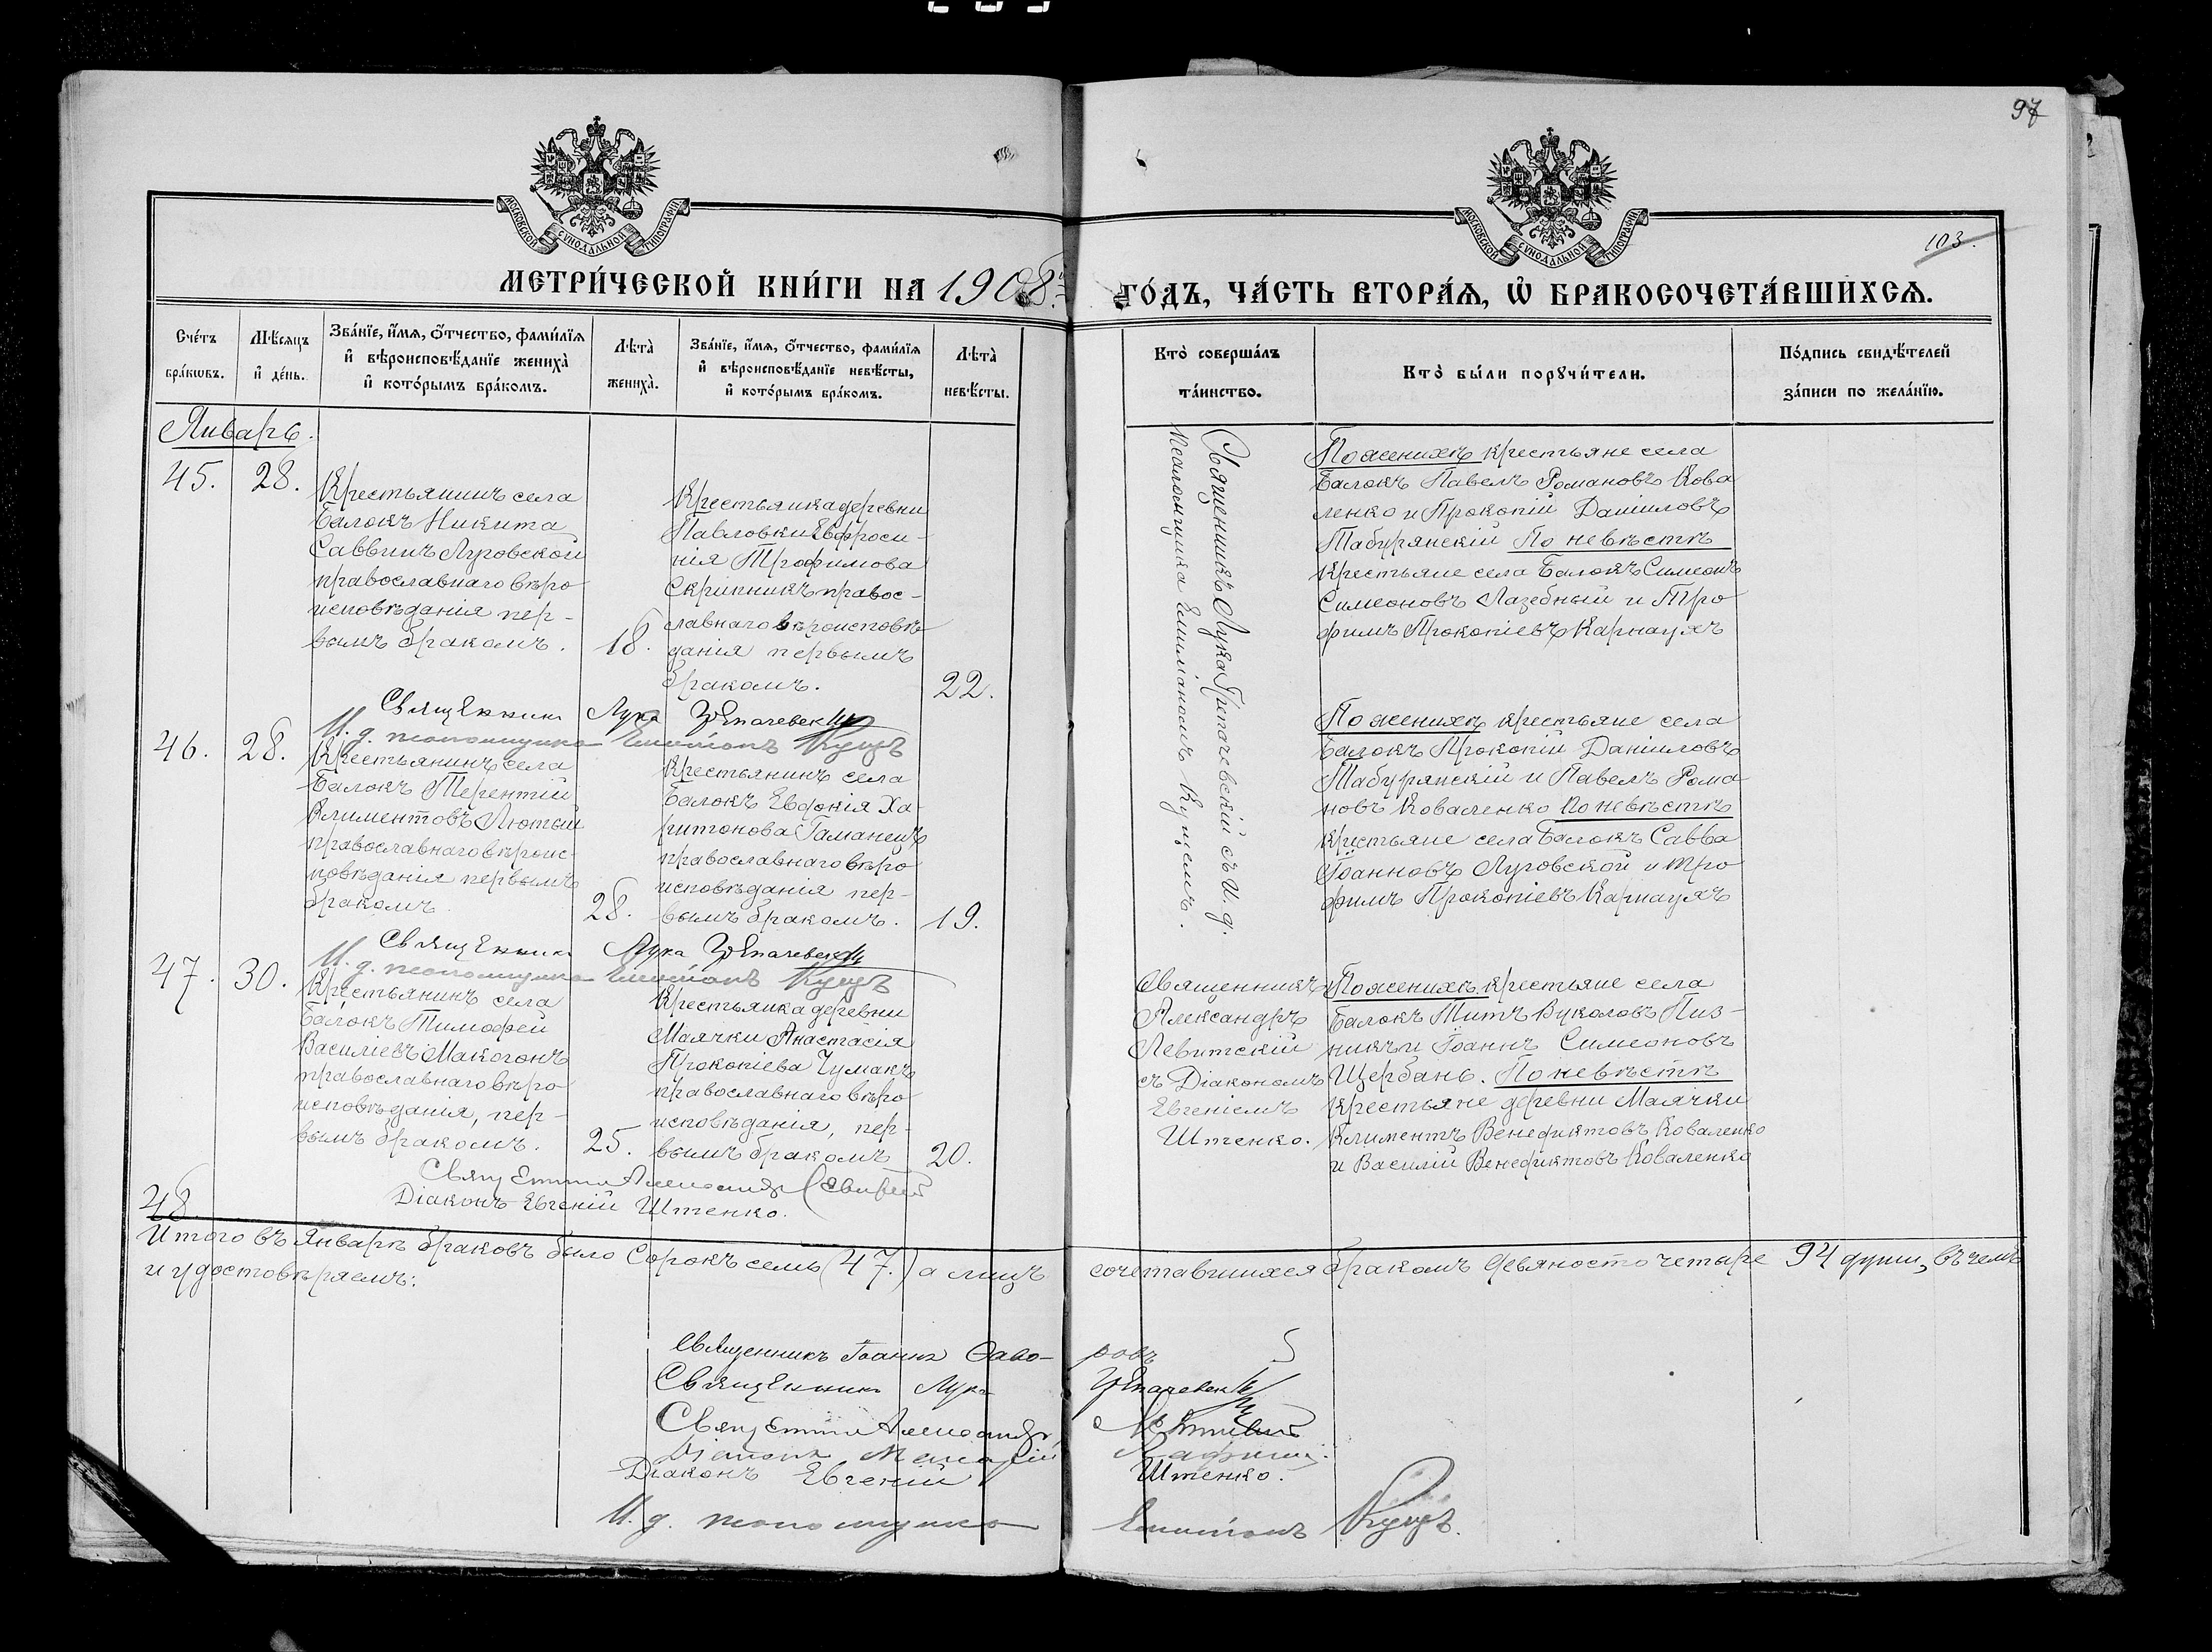 97
103.
МОСКОВСКОЙ СѴНОДАЛЬНОЙ ТИПОГРАФІИ
МОСКОВСКОЙ СѴНОДАЛЬНОЙ ТИПОГРАФІИ
МЕТРИ́ЧЕСКОЙ КНИ́ГИ НА 1908й ГО́ДЪ, ЧА́СТЬ ВТОРА́Ѧ, Ѡ҆ БРАКОСОЧЕТА́ВШИХСѦ.
Сче́тъ
бра́кѡвъ.
Мѣ́сѧцъ
и҆ де́нь.
Зва́нїе, и҆́мѧ, ѻ҆́тчество, фами́лїѧ
и҆ вѣроисповѣ́данїе жениха̀
и҆ кото́рымъ бра́комъ.
Лѣта̀
жениха̀.
Зва́нїе, и҆́мѧ, ѻ҆́тчество, фами́лїѧ
и҆ вѣроисповѣ́данїе невѣ́сты,
и҆ кото́рымъ бра́комъ.
Лѣта̀
невѣ́сты.
Кто̀ соверша́лъ
та́инство.
Кто̀ бы́ли порꙋчи́тели.
По́дпись свидѣ́телей
за́писи по жела́нїю.
Январь.
45.
28.
Крестьянинъ села
Балокъ Никита
Саввинъ Луговской
православнаго вѣро
исповѣданія пер-
вымъ бракомъ.
18.
Крестьянка деревни
Павловки Евфроси-
нія Трофимова
Скрипникъ правос-
лавнаго вѣроисповѣ
данія первымъ
бракомъ.
22.
Священникъ Лука Грепачевскій съ И. д.
Псаломщика Емиліаномъ Куцемъ.
По женихѣ крестьяне села
Балокъ Павелъ Романовъ Кова
ленко и Прокопій Даніиловъ
Табурянскій По невѣстѣ
крестьяне села Балокъ Симеонъ
Симеоновъ Лазебный и Тро
фимъ Прокопіевъ Карнаухъ
Священникъ Лука Грепачевскій
И. д. псаломщика Емиліанъ Куцъ
46.
28.
Крестьянинъ села
Балокъ Терентій
Климентовъ Лютый
православнаго вѣроис-
повѣданія первымъ
бракомъ
28.
Крестьянинъ села
Балокъ Евдокія Ха-
ритонова Гаманецъ
православнаго вѣро
исповѣданія пер-
вымъ бракомъ.
19.
По женихѣ крестьяне села
Балокъ Прокопій Даніиловъ
Табурянскій и Павелъ Рома
новъ Коваленко По невѣстѣ
крестьяне села Балокъ Савва
Іоанновъ Луговской и Тро
фимъ Прокопіевъ Карнаухъ
Священникъ Лука Грепачевскій
И. д. псаломщика Емиліанъ Куцъ
47.
30.
Крестьянинъ села
Балокъ Тимофей
Василіевъ Макогонъ
православнаго вѣро
исповѣданія, пер-
вымъ бракомъ.
25.
Крестьянка деревни
Маячки Анастасія
Прокопіева Чумакъ
православнаго вѣро
исповѣданія, пер-
вымъ бракомъ
20.
Священникъ
Александръ
Левитскій
съ Діакономъ
Евгеніемъ
Штенко.
По женихѣ крестьяне села
Балокъ Титъ Вуколовъ Пиз-
никъ и Іоаннъ Симеоновъ
Щербань. По невѣстѣ
Крестьяне деревни Маячки
Климентъ Венефиктовъ Коваленко
и Василій Венефиктовъ Коваленко
Священникъ Александръ Левитскій
Діаконъ Евгеній Штенко.
48.
Итого въ Январѣ браковъ было сорокъ семь (47.) а лицъ сочетавшихся бракомъ девяносто четыре 94 души, въ чемъ
и удостовѣряемъ:
Священникъ Іоаннъ Ѳаво- ровъ
Священникъ Лука Грепачевскій
Священникъ Александръ Левитскій
Діаконъ
Діаконъ Евгеній Штенко.
И. д. псаломщика Емиліанъ Куцъ.